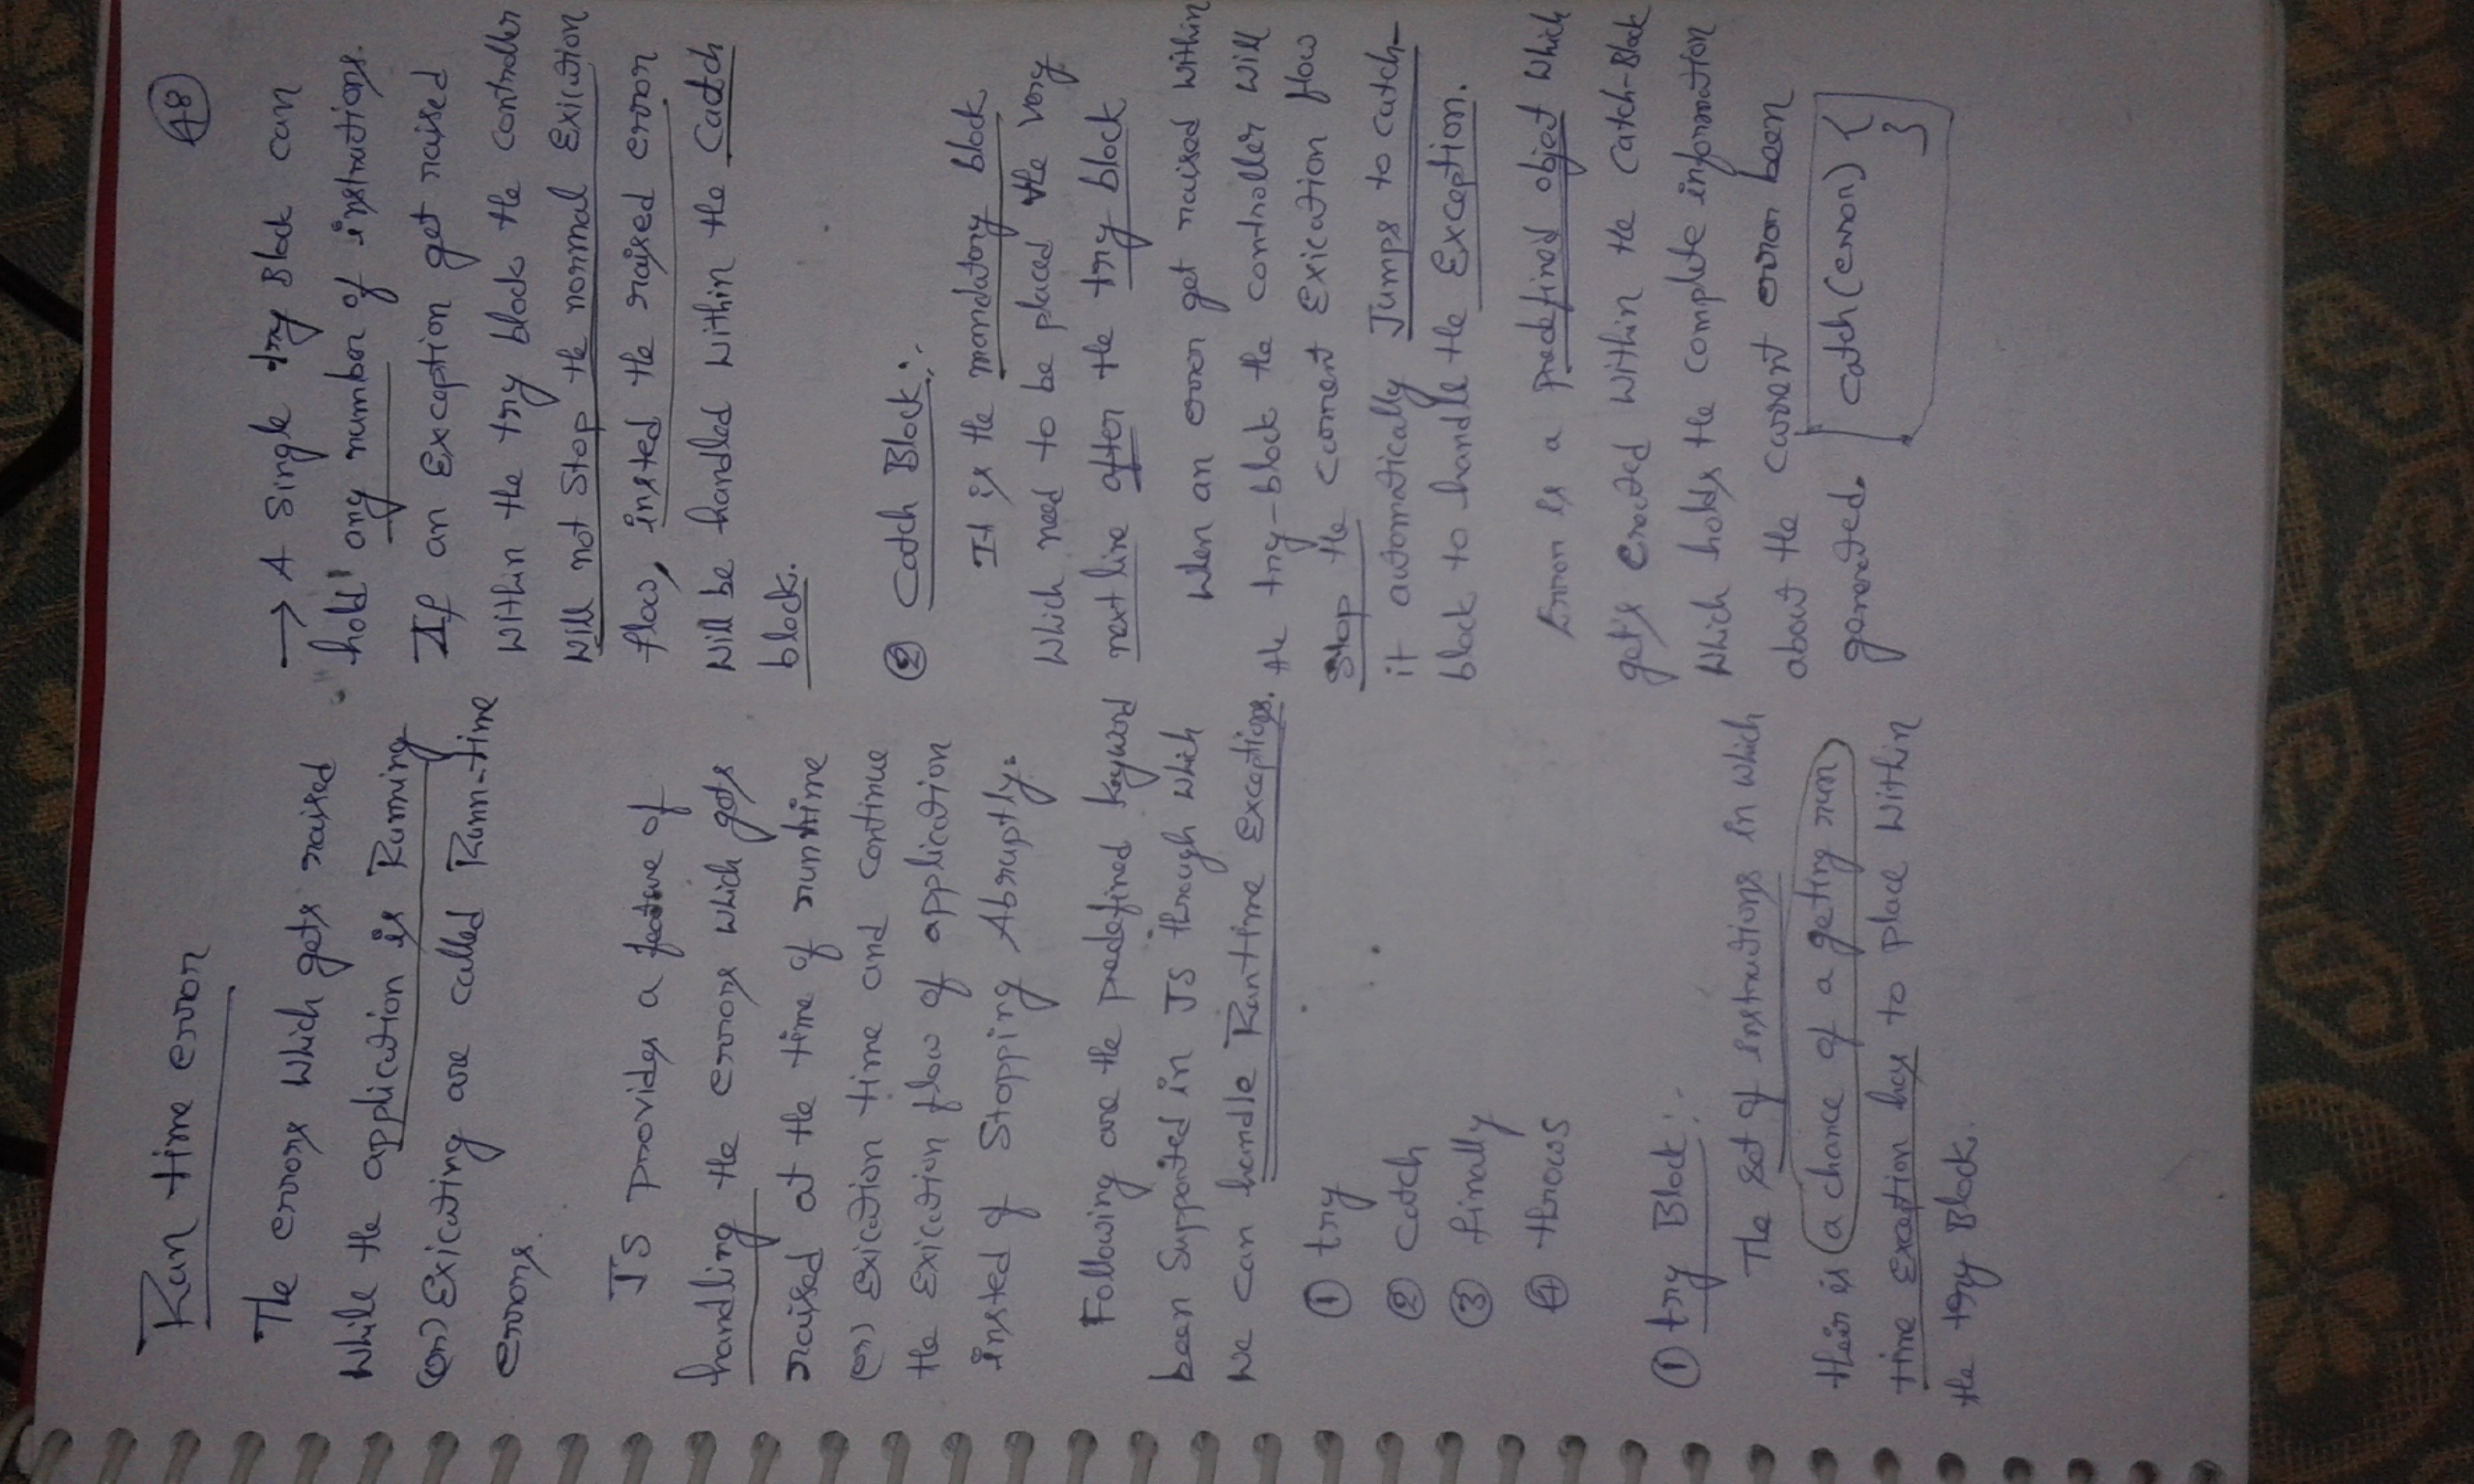 Run time error
The errors which gets raised
while the application is Running
(or) Exicuting are called Run-time
errors.
JS provides a feature of
handling the errors which gets
raised at the time of runtime
(or) Exicution time and continue
the Exicution flow of application
insted of Stopping Abruptly.
Following are the predefined keyword
been Supported in JS through which
we can handle Runtime Exceptions.
① try
② catch
③ finally
④ throws
① try Block:-
The set of instructions in which
their is a chance of a geting run
time Exception has to place within
the try Block.
48
→ A Single try Block can
"hold" any number of instructions.
If an Exception get raised
within the try block the controller
will not Stop the normal Exicution
flow, insted the raised error
will be handled within the Catch
block.
② Catch Block:-
It is the mandatory block
which need to be placed the very
next line after the try block
when an error get raised within
the try-block the controller will
Stop the corrent Exicution flow
it automatically Jumps to catch-
block to handle the Exception.
Error is a predefined object which
get's Created within the Catch-Block
which holds the complete information
about the current error been
generated. catch(error) {
}